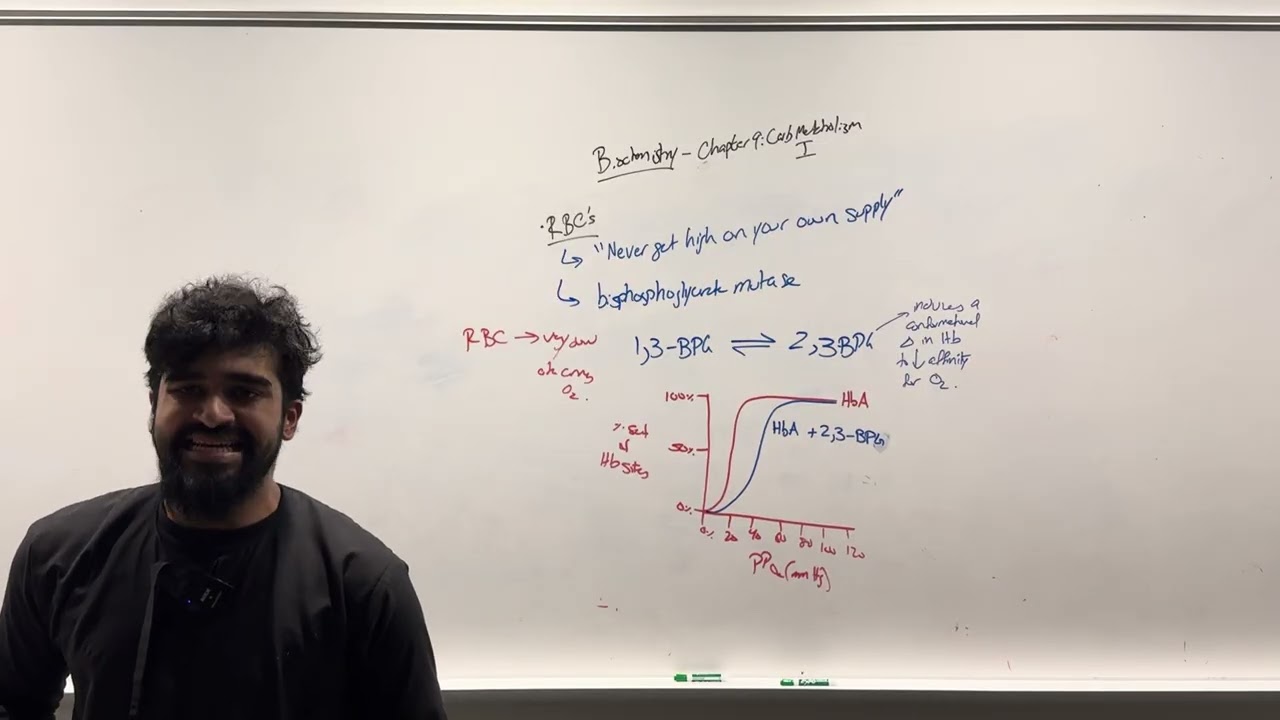 Biochemistry - Chapter 9: Carb Metabolism
I
• RBC's
↳ "Never get high on your own supply"
↳ bisphosphoglycerate mutase
RBC → very low
O₂.
1,3-BPG ⇌ 2,3BPG
induces a
conformational
Δ in Hb
to ↓ affinity
for O₂.
% sat
of
Hb sites
100%
50%
0%
HbA
HbA + 2,3-BPG
0% 20 40 60 80 100 120
PPO₂ (mmHg)